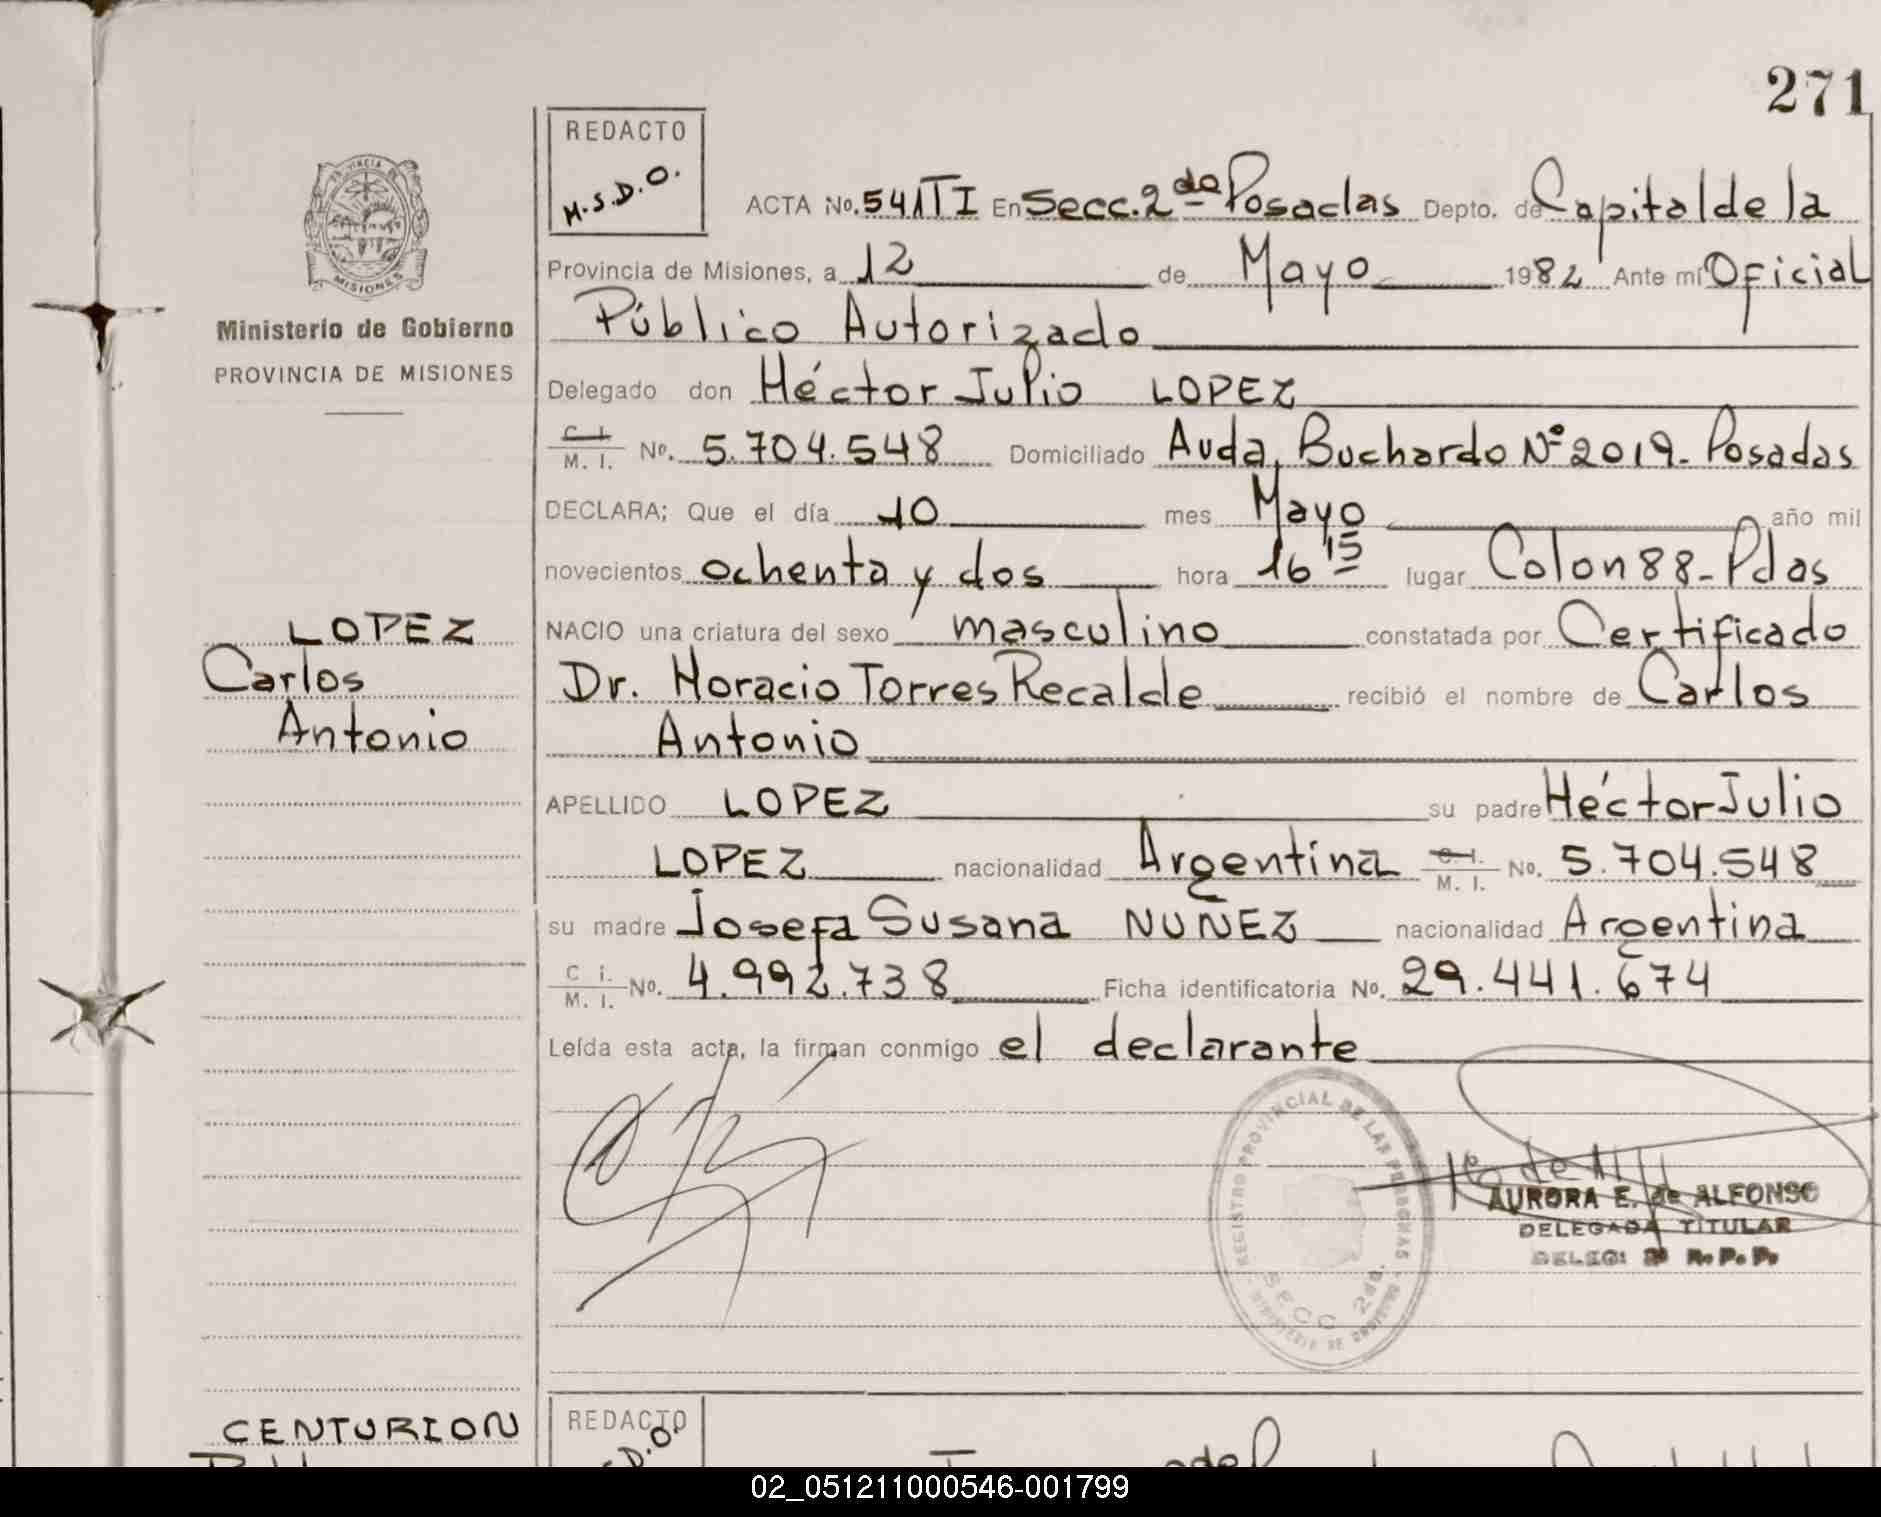 271
REDACTO
M.S.D.O.
PROVINCIA DE
MISIONES
Ministerio de Gobierno
PROVINCIA DE MISIONES
ACTA No. 541 TI En Secc. 2da Posadas Depto. de Capital de la
Provincia de Misiones, a 12 de Mayo 1982 Ante mí Oficial
Público Autorizado
Delegado don Héctor Julio LOPEZ
C. I. / M. I. No. 5.704.548 Domiciliado Avda. Buchardo Nº 2019- Posadas
DECLARA; Que el día 10 mes Mayo año mil
novecientos ochenta y dos hora 16 15 lugar Colon 88- Pdas
NACIO una criatura del sexo masculino constatada por Certificado
Dr. Horacio Torres Recalde recibió el nombre de Carlos
Antonio
APELLIDO LOPEZ su padre Héctor Julio
LOPEZ nacionalidad Argentina C. I. / M. I. No. 5.704.548
su madre Josefa Susana NUÑEZ nacionalidad Argentina
C I. / M. I. No. 4.992.738 Ficha identificatoria No. 29.441.674
Leída esta acta, la firman conmigo el declarante
LOPEZ
Carlos
Antonio
REGISTRO PROVINCIAL DE LAS PERSONAS
SECC 2da.
MINISTERIO DE GOBIERNO
AURORA E. de ALFONSO
DELEGADA TITULAR
DELEG: 2ª R. P. P.
CENTURION
REDACTO
D.O.
02_051211000546-001799